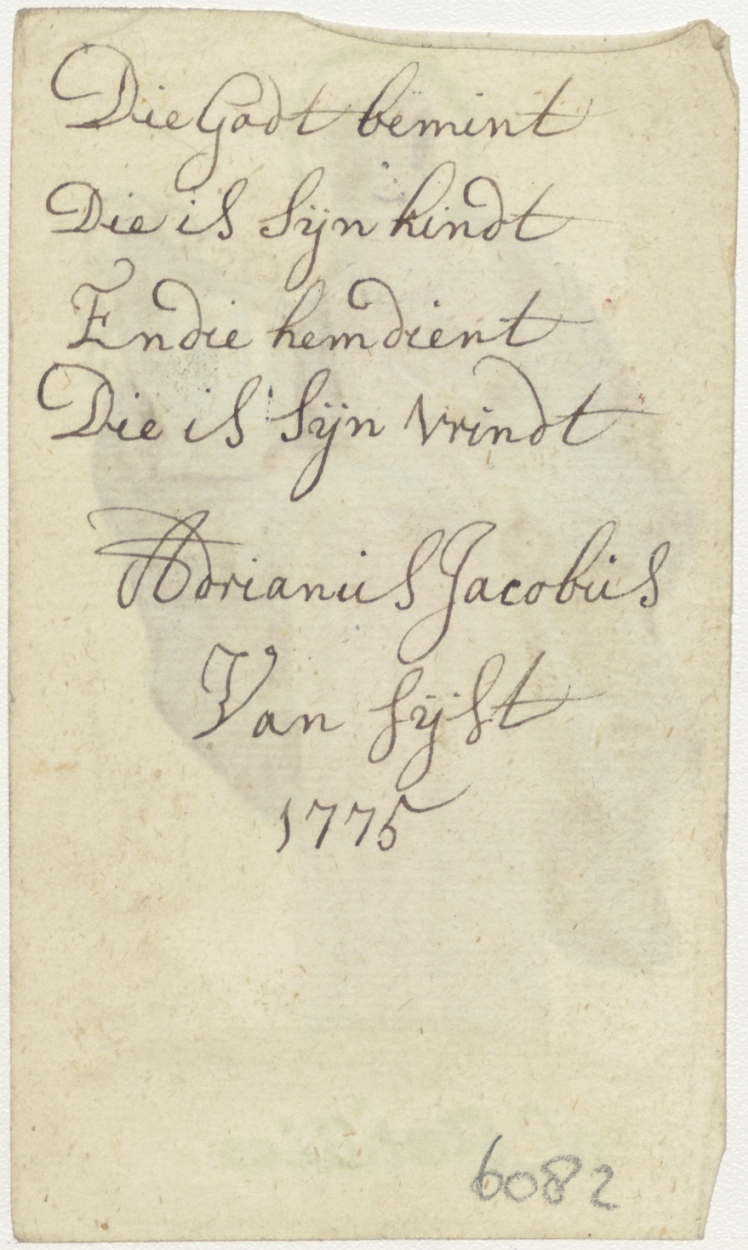 Die Godt bemint
Die is sÿn kindt
En die hem dient
Die is sÿn vrindt
Adrianus Jacobus
Van sÿst
1775
6082